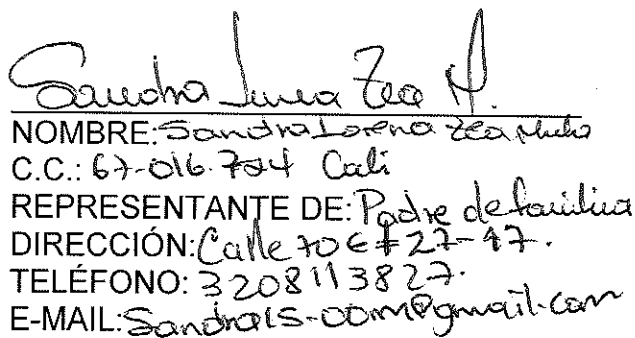 Sandra Lorena Zea M.
NOMBRE: Sandra Lorena Zea
C.C.: 67-016.724 Cali
REPRESENTANTE DE: Padre de familia
DIRECCIÓN: Calle 70 E # 27-47.
TELÉFONO: 3208113827.
E-MAIL: @gmail.com